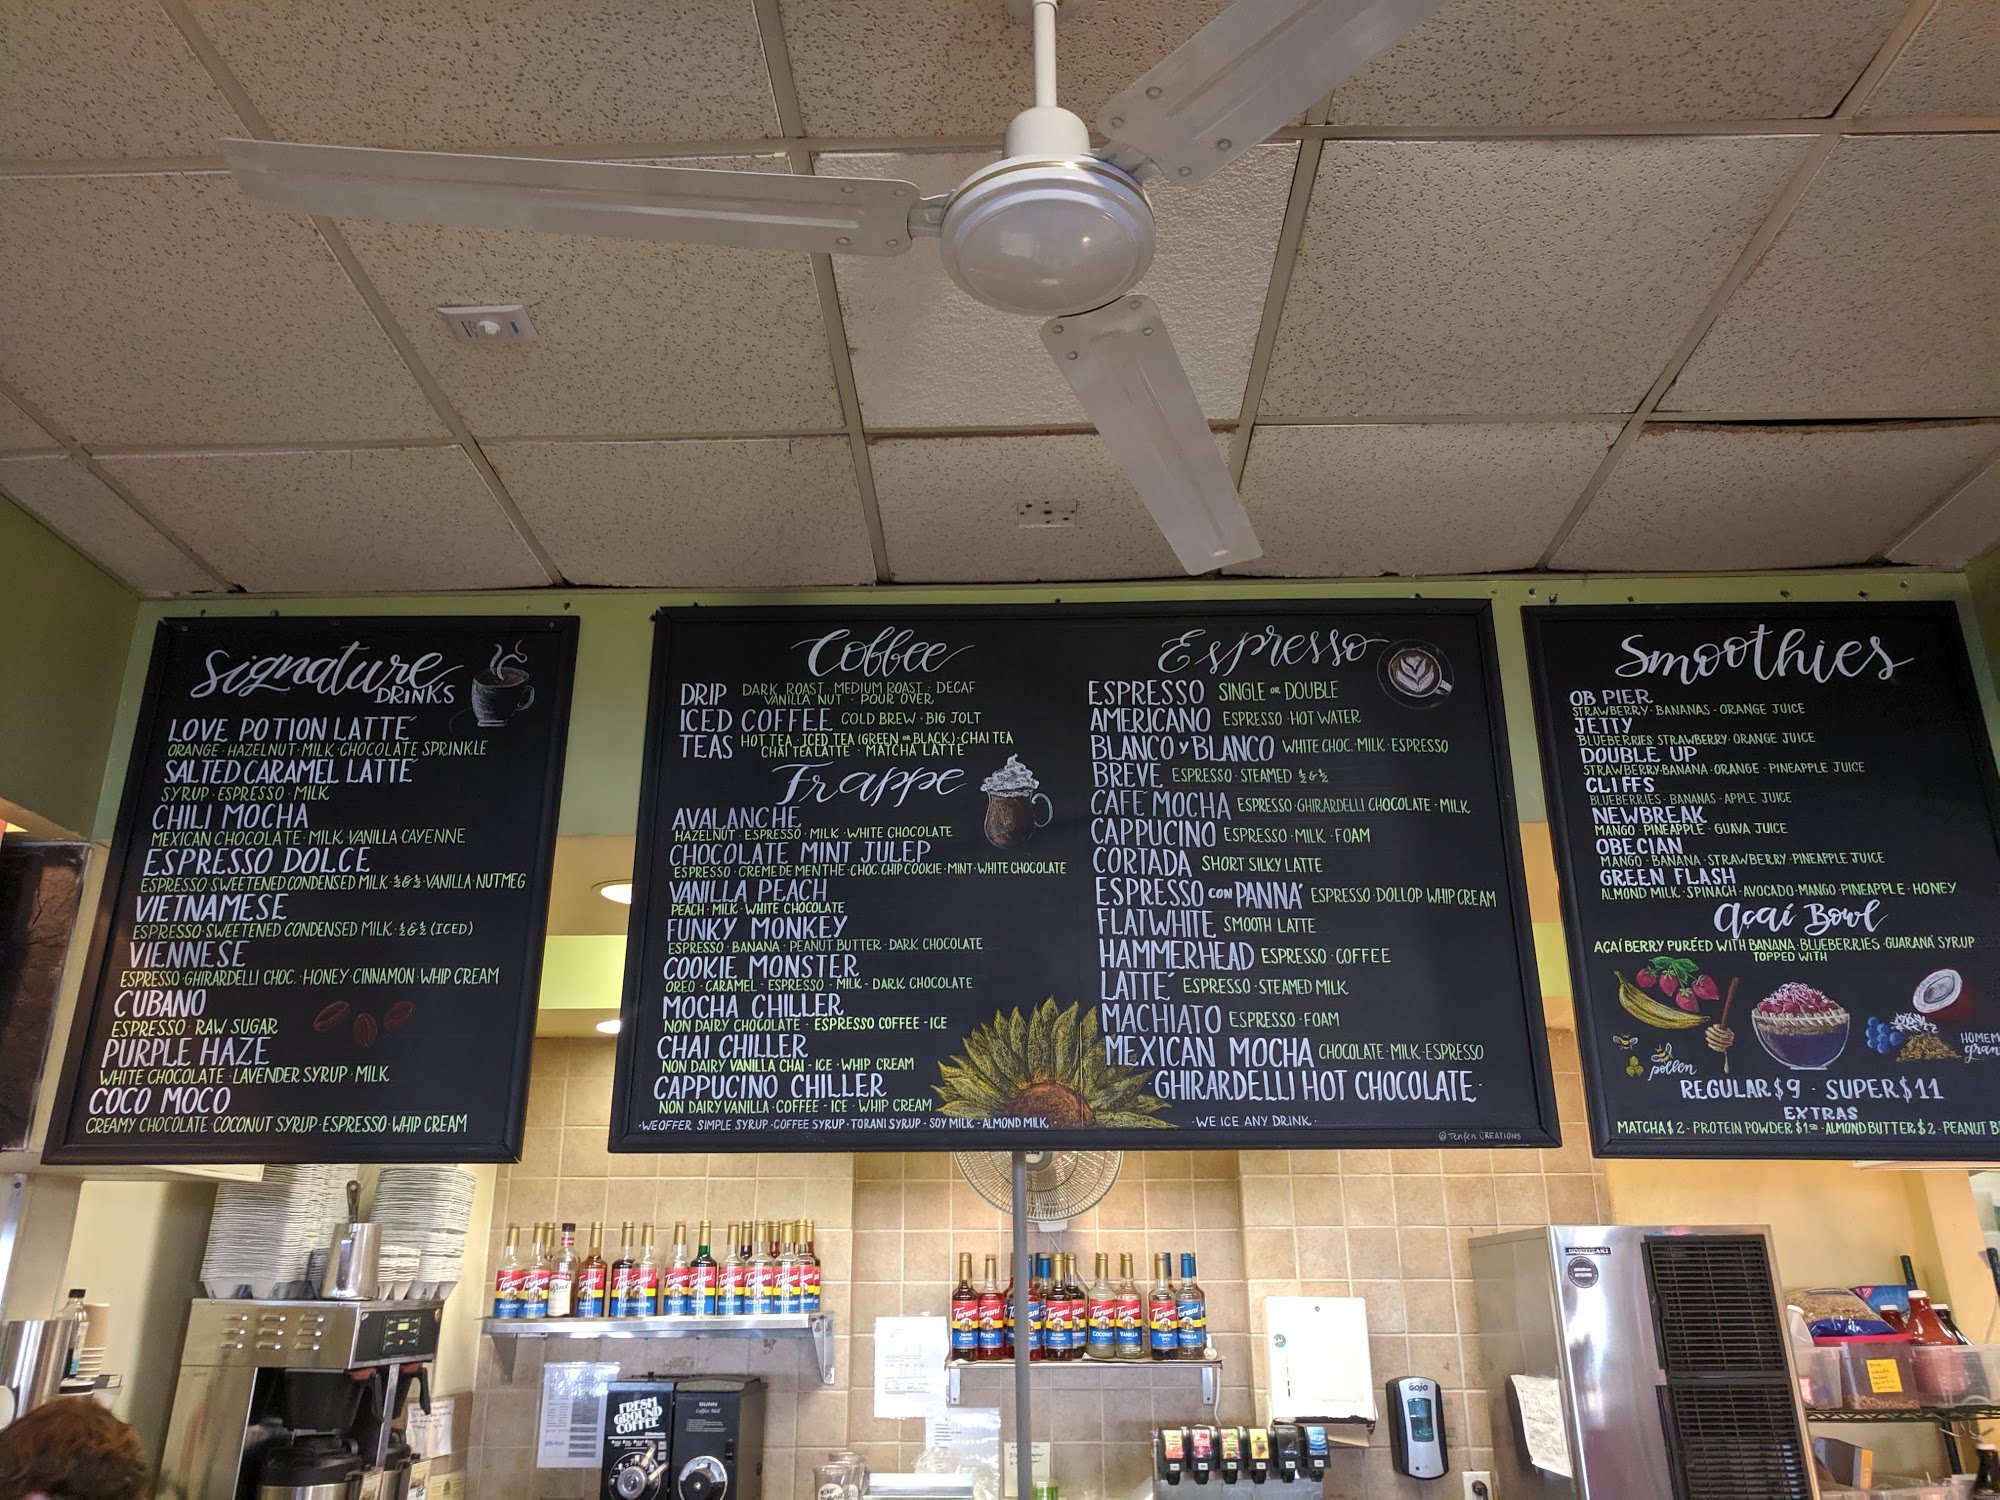 Signature
DRINKS
LOVE POTION LATTÉ
ORANGE · HAZELNUT · MILK · CHOCOLATE SPRINKLE
SALTED CARAMEL LATTÉ
SYRUP · ESPRESSO · MILK
CHILI MOCHA
MEXICAN CHOCOLATE · MILK · VANILLA · CAYENNE
ESPRESSO DOLCE
ESPRESSO · SWEETENED CONDENSED MILK · ½ & ½ · VANILLA · NUTMEG
VIETNAMESE
ESPRESSO · SWEETENED CONDENSED MILK · ½ & ½ (ICED)
VIENNESE
ESPRESSO · GHIRARDELLI CHOC. · HONEY · CINNAMON · WHIP CREAM
CUBANO
ESPRESSO · RAW SUGAR
PURPLE HAZE
WHITE CHOCOLATE · LAVENDER SYRUP · MILK
COCO MOCO
CREAMY CHOCOLATE · COCONUT SYRUP · ESPRESSO · WHIP CREAM
Coffee
DRIP DARK ROAST · MEDIUM ROAST · DECAF
VANILLA NUT · POUR OVER
ICED COFFEE COLD BREW · BIG JOLT
TEAS HOT TEA · ICED TEA (GREEN OR BLACK) · CHAI TEA
CHAI TEA LATTE · MATCHA LATTE
Frappe
AVALANCHE
HAZELNUT · ESPRESSO · MILK · WHITE CHOCOLATE
CHOCOLATE MINT JULEP
ESPRESSO · CREME DE MENTHE · CHOC. CHIP COOKIE · MINT · WHITE CHOCOLATE
VANILLA PEACH
PEACH · MILK · WHITE CHOCOLATE
FUNKY MONKEY
ESPRESSO · BANANA · PEANUT BUTTER · DARK CHOCOLATE
COOKIE MONSTER
OREO · CARAMEL · ESPRESSO · MILK · DARK CHOCOLATE
MOCHA CHILLER
NON DAIRY CHOCOLATE · ESPRESSO COFFEE · ICE
CHAI CHILLER
NON DAIRY VANILLA CHAI · ICE · WHIP CREAM
CAPPUCINO CHILLER
NON DAIRY VANILLA · COFFEE · ICE · WHIP CREAM
· WE OFFER SIMPLE SYRUP · COFFEE SYRUP · TORANI SYRUP · SOY MILK · ALMOND MILK ·
Espresso
ESPRESSO SINGLE OR DOUBLE
AMERICANO ESPRESSO · HOT WATER
BLANCO y BLANCO WHITE CHOC · MILK · ESPRESSO
BREVE ESPRESSO · STEAMED ½ & ½
CAFÉ MOCHA ESPRESSO · GHIRARDELLI CHOCOLATE · MILK
CAPPUCINO ESPRESSO · MILK · FOAM
CORTADA SHORT SILKY LATTE
ESPRESSO CON PANNÁ ESPRESSO · DOLLOP WHIP CREAM
FLATWHITE SMOOTH LATTE
HAMMERHEAD ESPRESSO · COFFEE
LATTÉ ESPRESSO · STEAMED MILK
MACHIATO ESPRESSO · FOAM
MEXICAN MOCHA CHOCOLATE · MILK · ESPRESSO
· GHIRARDELLI HOT CHOCOLATE ·
· WE ICE ANY DRINK ·
Smoothies
OB PIER
STRAWBERRY · BANANAS · ORANGE JUICE
JETTY
BLUEBERRIES · STRAWBERRY · ORANGE JUICE
DOUBLE UP
STRAWBERRY · BANANA · ORANGE · PINEAPPLE JUICE
CLIFFS
BLUEBERRIES · BANANAS · APPLE JUICE
NEWBREAK
MANGO · PINEAPPLE · GUAVA JUICE
OBECIAN
MANGO · BANANA · STRAWBERRY · PINEAPPLE JUICE
GREEN FLASH
ALMOND MILK · SPINACH · AVOCADO · MANGO · PINEAPPLE · HONEY
Açaí Bowl
AÇAÍ BERRY PURÉED WITH BANANA · BLUEBERRIES · GUARANÁ SYRUP
TOPPED WITH
pollen
REGULAR $9 · SUPER $11
EXTRAS
MATCHA $2 · PROTEIN POWDER $1.50 · ALMOND BUTTER $2 · PEANUT
FRESH
GROUND
COFFEE
BUNN
Coffee Mill
Torani
PEACH
Torani
PEACH
Torani
COCONUT
Torani
VANILLA
Torani
VANILLA
GOJO
HOSHIZAKI